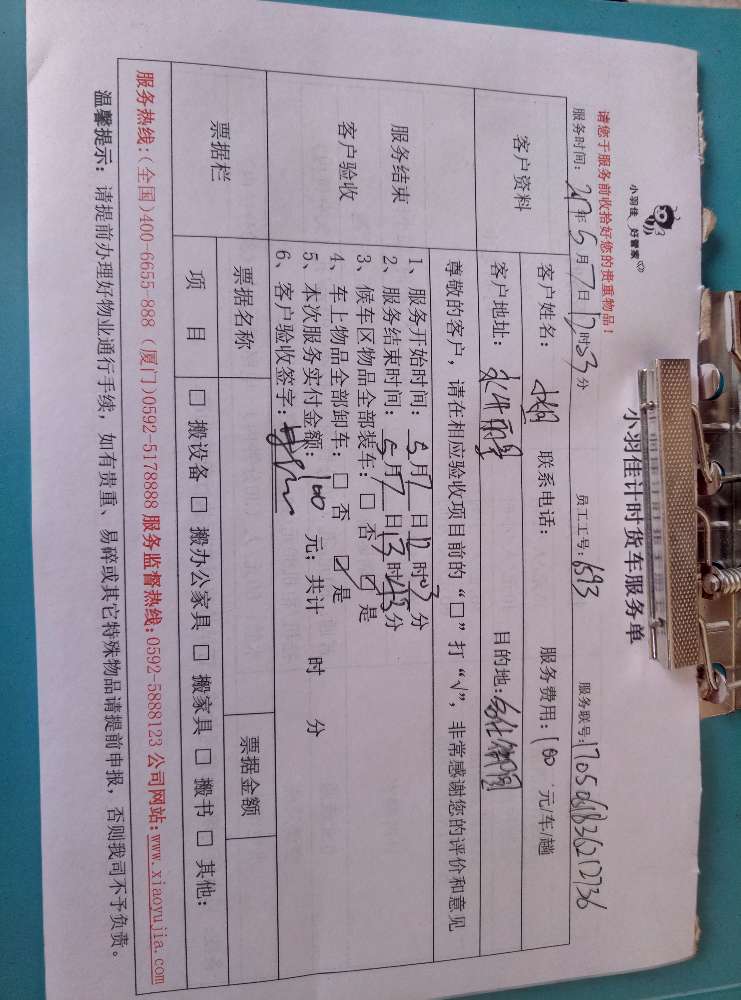 小羽佳 好管家
小羽佳计时货车服务单
请您于服务前收拾好您的贵重物品！
服务时间： 年 5 月 7 日 12 时 3 分 员工工号：1593 服务联号：1705061836212736
客户资料
客户姓名： 联系电话： 服务费用：100 元/车/趟
客户地址： 目的地：
服务结束
客户验收
尊敬的客户，请在相应验收项目前的“□”打“√”，非常感谢您的评价和意见
1、服务开始时间：5月7日12时03分
2、服务结束时间：5月7日13时45分
3、候车区物品全部装车：□ 否 ☑ 是
4、车上物品全部卸车：□ 否 ☑ 是
5、本次服务实付金额：100 元；共计 时 分
6、客户验收签字：
票据栏
票据名称 票据金额
项 目 □ 搬设备 □ 搬办公家具 □ 搬家具 □ 搬书 □ 其他：
服务热线：(全国)400-6655-888 (厦门)0592-5178888 服务监督热线：0592-5888123 公司网站：www.xiaoyujia.com
温馨提示：请提前办理好物业通行手续，如有贵重、易碎或其它特殊物品请提前申报，否则我司不予负责。